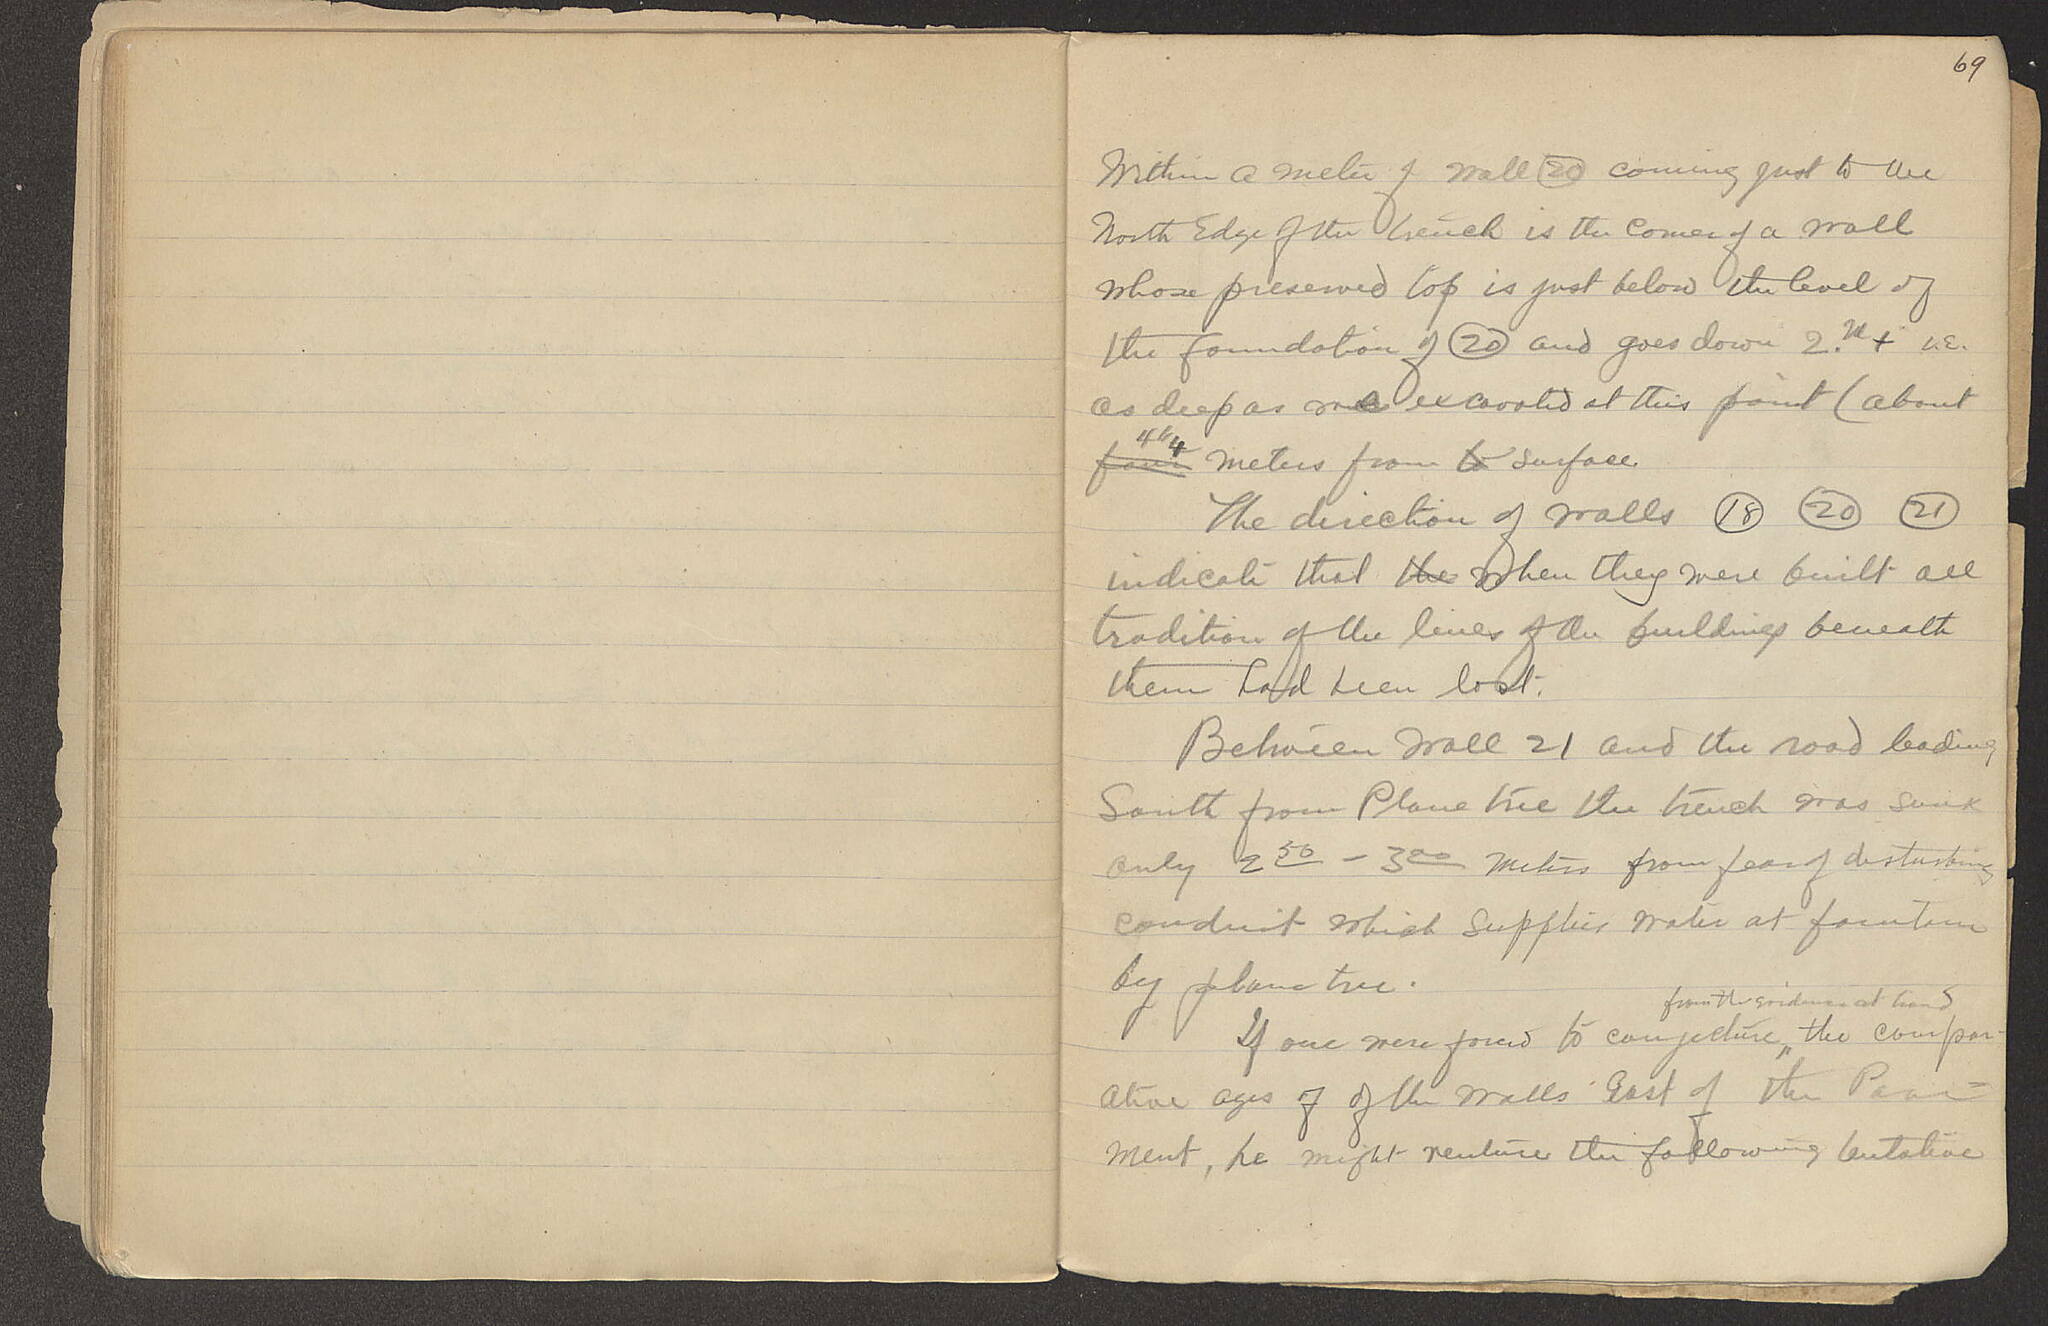 69
Within a meter of wall (20) coming just to the
North Edge of the trench is the corner of a wall
whose preserved top is just below the level of
the foundation of (20) and goes down 2.m + i.e.
as deep as we excavated at this point (about
four 4 meters from to surface.
The direction of walls (18) (20) (21)
indicate that the when they were built all
tradition of the lines of the buildings beneath
them had been lost.
Between wall 21 and the road leading
South from Plane tree the trench was sunk
only 2 50 – 3 00 meters from fear of disturbing
conduit which supplies water at fountain
by plane tree.
from the evidence at hand
If one were forced to conjecture the compar-
ative ages of of the walls East of the Pave-
ment, he might venture the following tentative